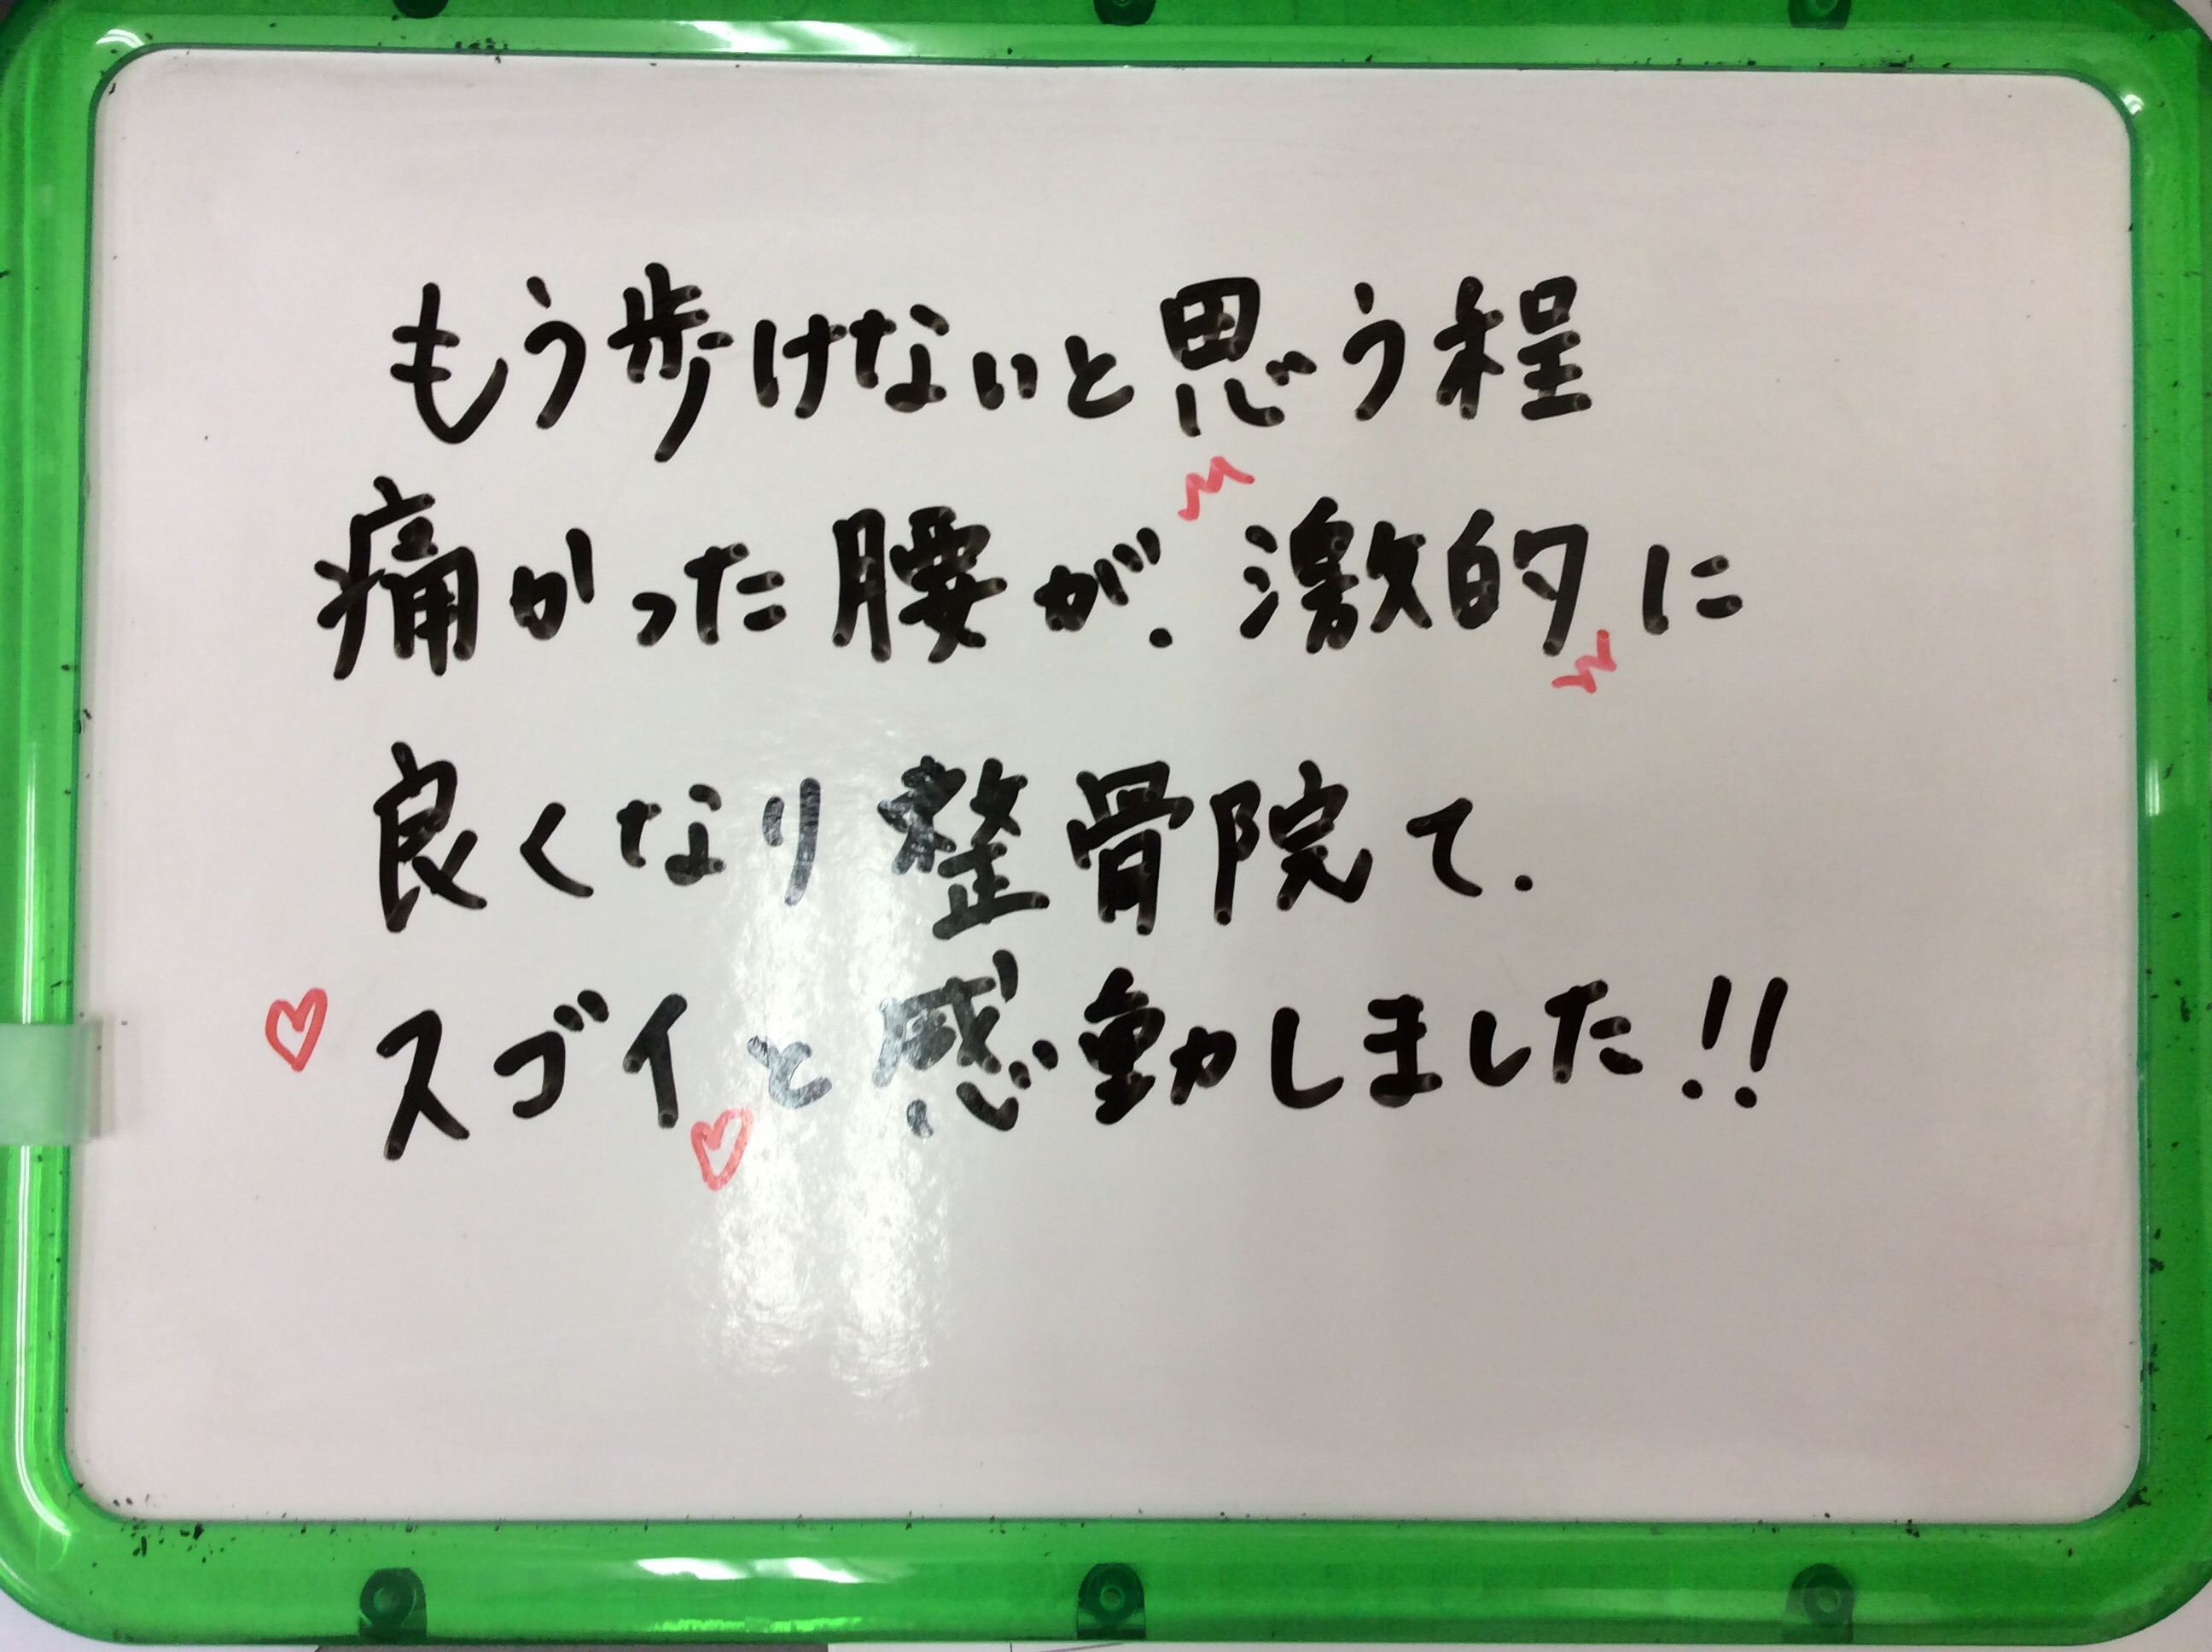 もう歩けないと思う程
痛かった腰が.激的に
良くなり整骨院て.
♡スゴイ♡と感動しました!!